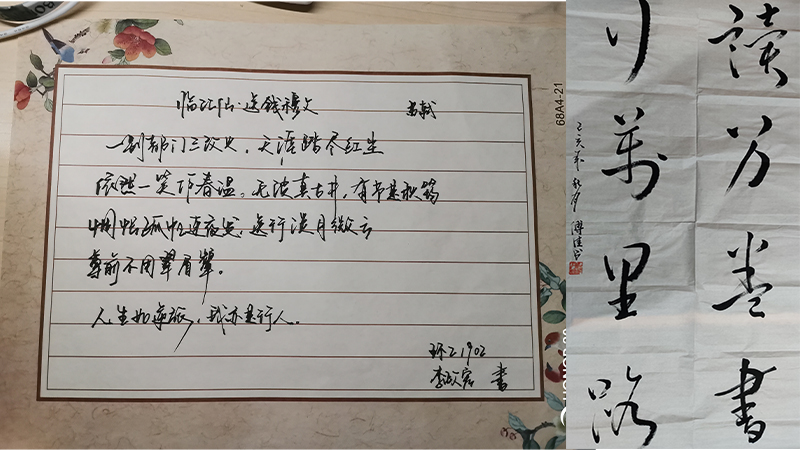 临江仙·送钱穆父 苏轼
一别都门三改火,天涯踏尽红尘
依然一笑作春温。无波真古井,有节是秋筠
惆怅孤帆连夜发,送行淡月微云
尊前不用翠眉颦。
人生如逆旅,我亦是行人。
环工1902
李 书
68A4-21
讀万卷書
行萬里路
己亥年秋月